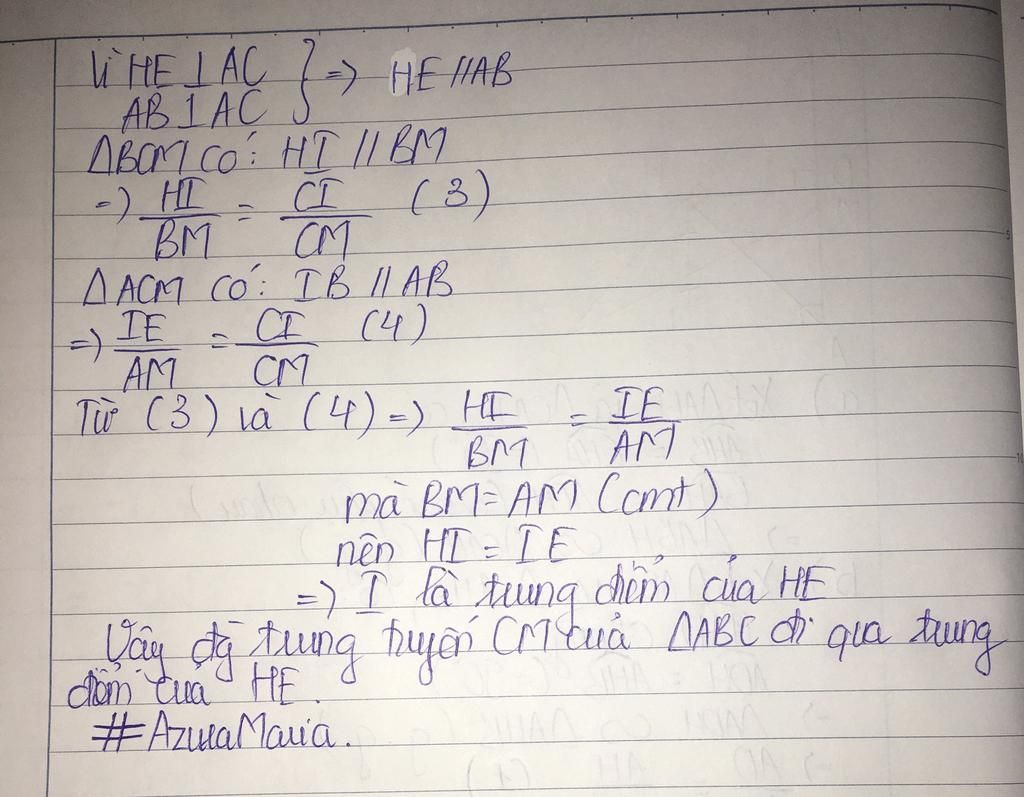 Vì HE ⊥ AC } => HE // AB
AB ⊥ AC
ΔBCM có: HI // BM
=> HI/BM = CI/CM (3)
ΔACM có: IB // AB
=> IE/AM = CI/CM (4)
Từ (3) và (4) => HI/BM = IE/AM
mà BM = AM (cmt)
nên HI = IE
=> I là trung điểm của HE
Vậy đg trung tuyến CM của ΔABC đi qua trung
điểm của HE.
#AzulaMaria.